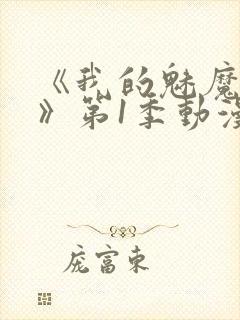 《我的魅魔
》第1季动漫
庞富东